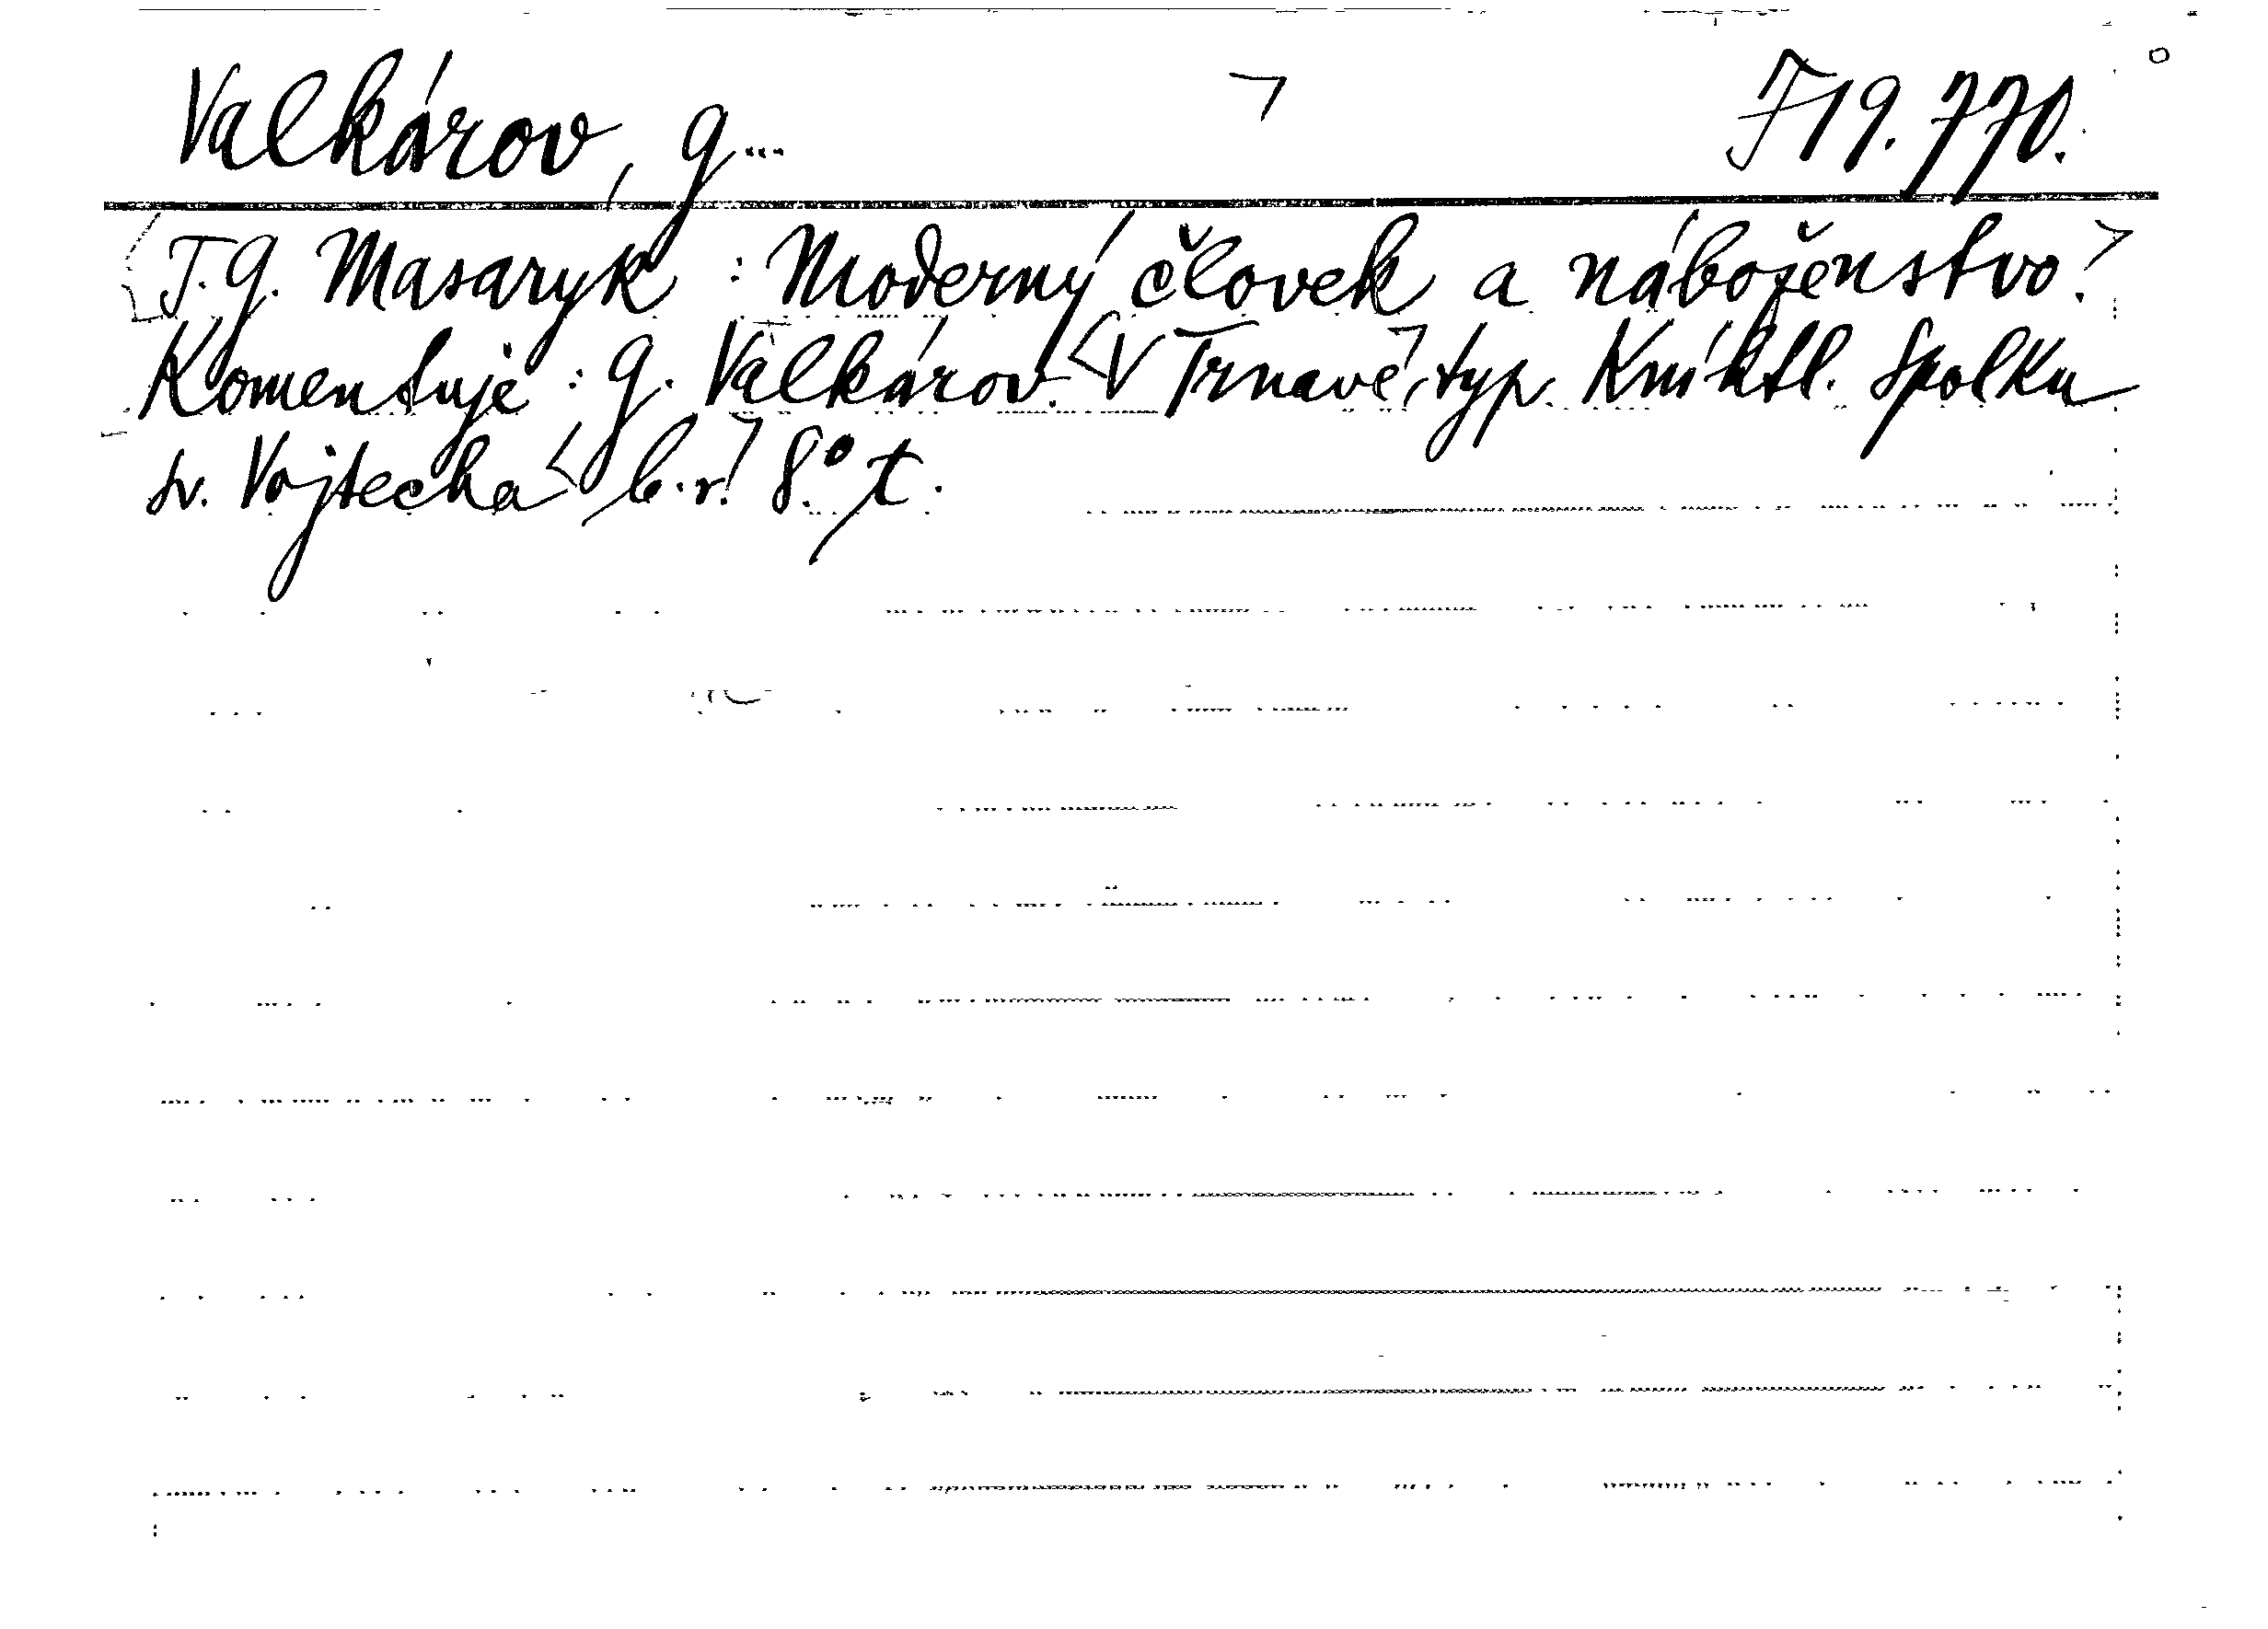 Valkárov, G... J 19.770.
T. G. Masaryk : Moderný človek a náboženstvo.
Komentuje : G. Valkárov. V Trnavě, typ. Kníhtl. Spolku
sv. Vojtecha b. r. 8° t.